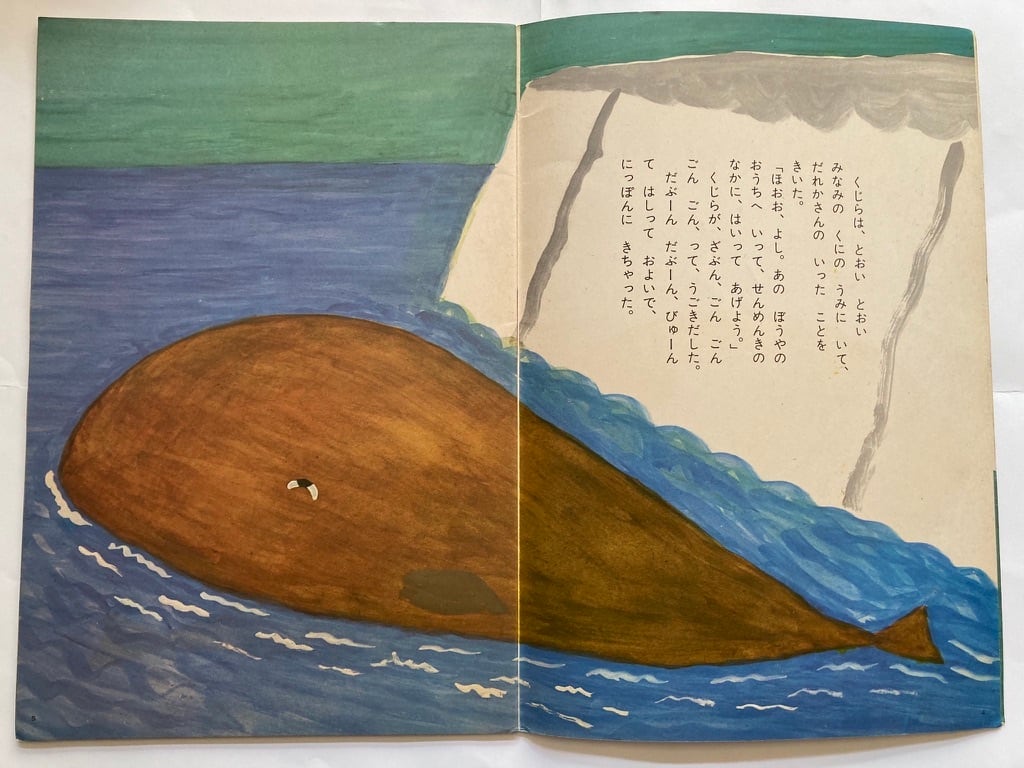 くじらは、とおい　とおい
みなみの　くにの　うみに　いて、
だれかさんの　いった　ことを
きいた。
「ほおお、よし。あの　ぼうやの
おうちへ　いって、せんめんきの
なかに、はいって　あげよう。」
くじらが、ざぶん、ごん　ごん
ごん　ごん、って、うごきだした。
だぶーん　だぶーん、びゅーん
て　はしって　およいで、
にっぽんに　きちゃった。
5